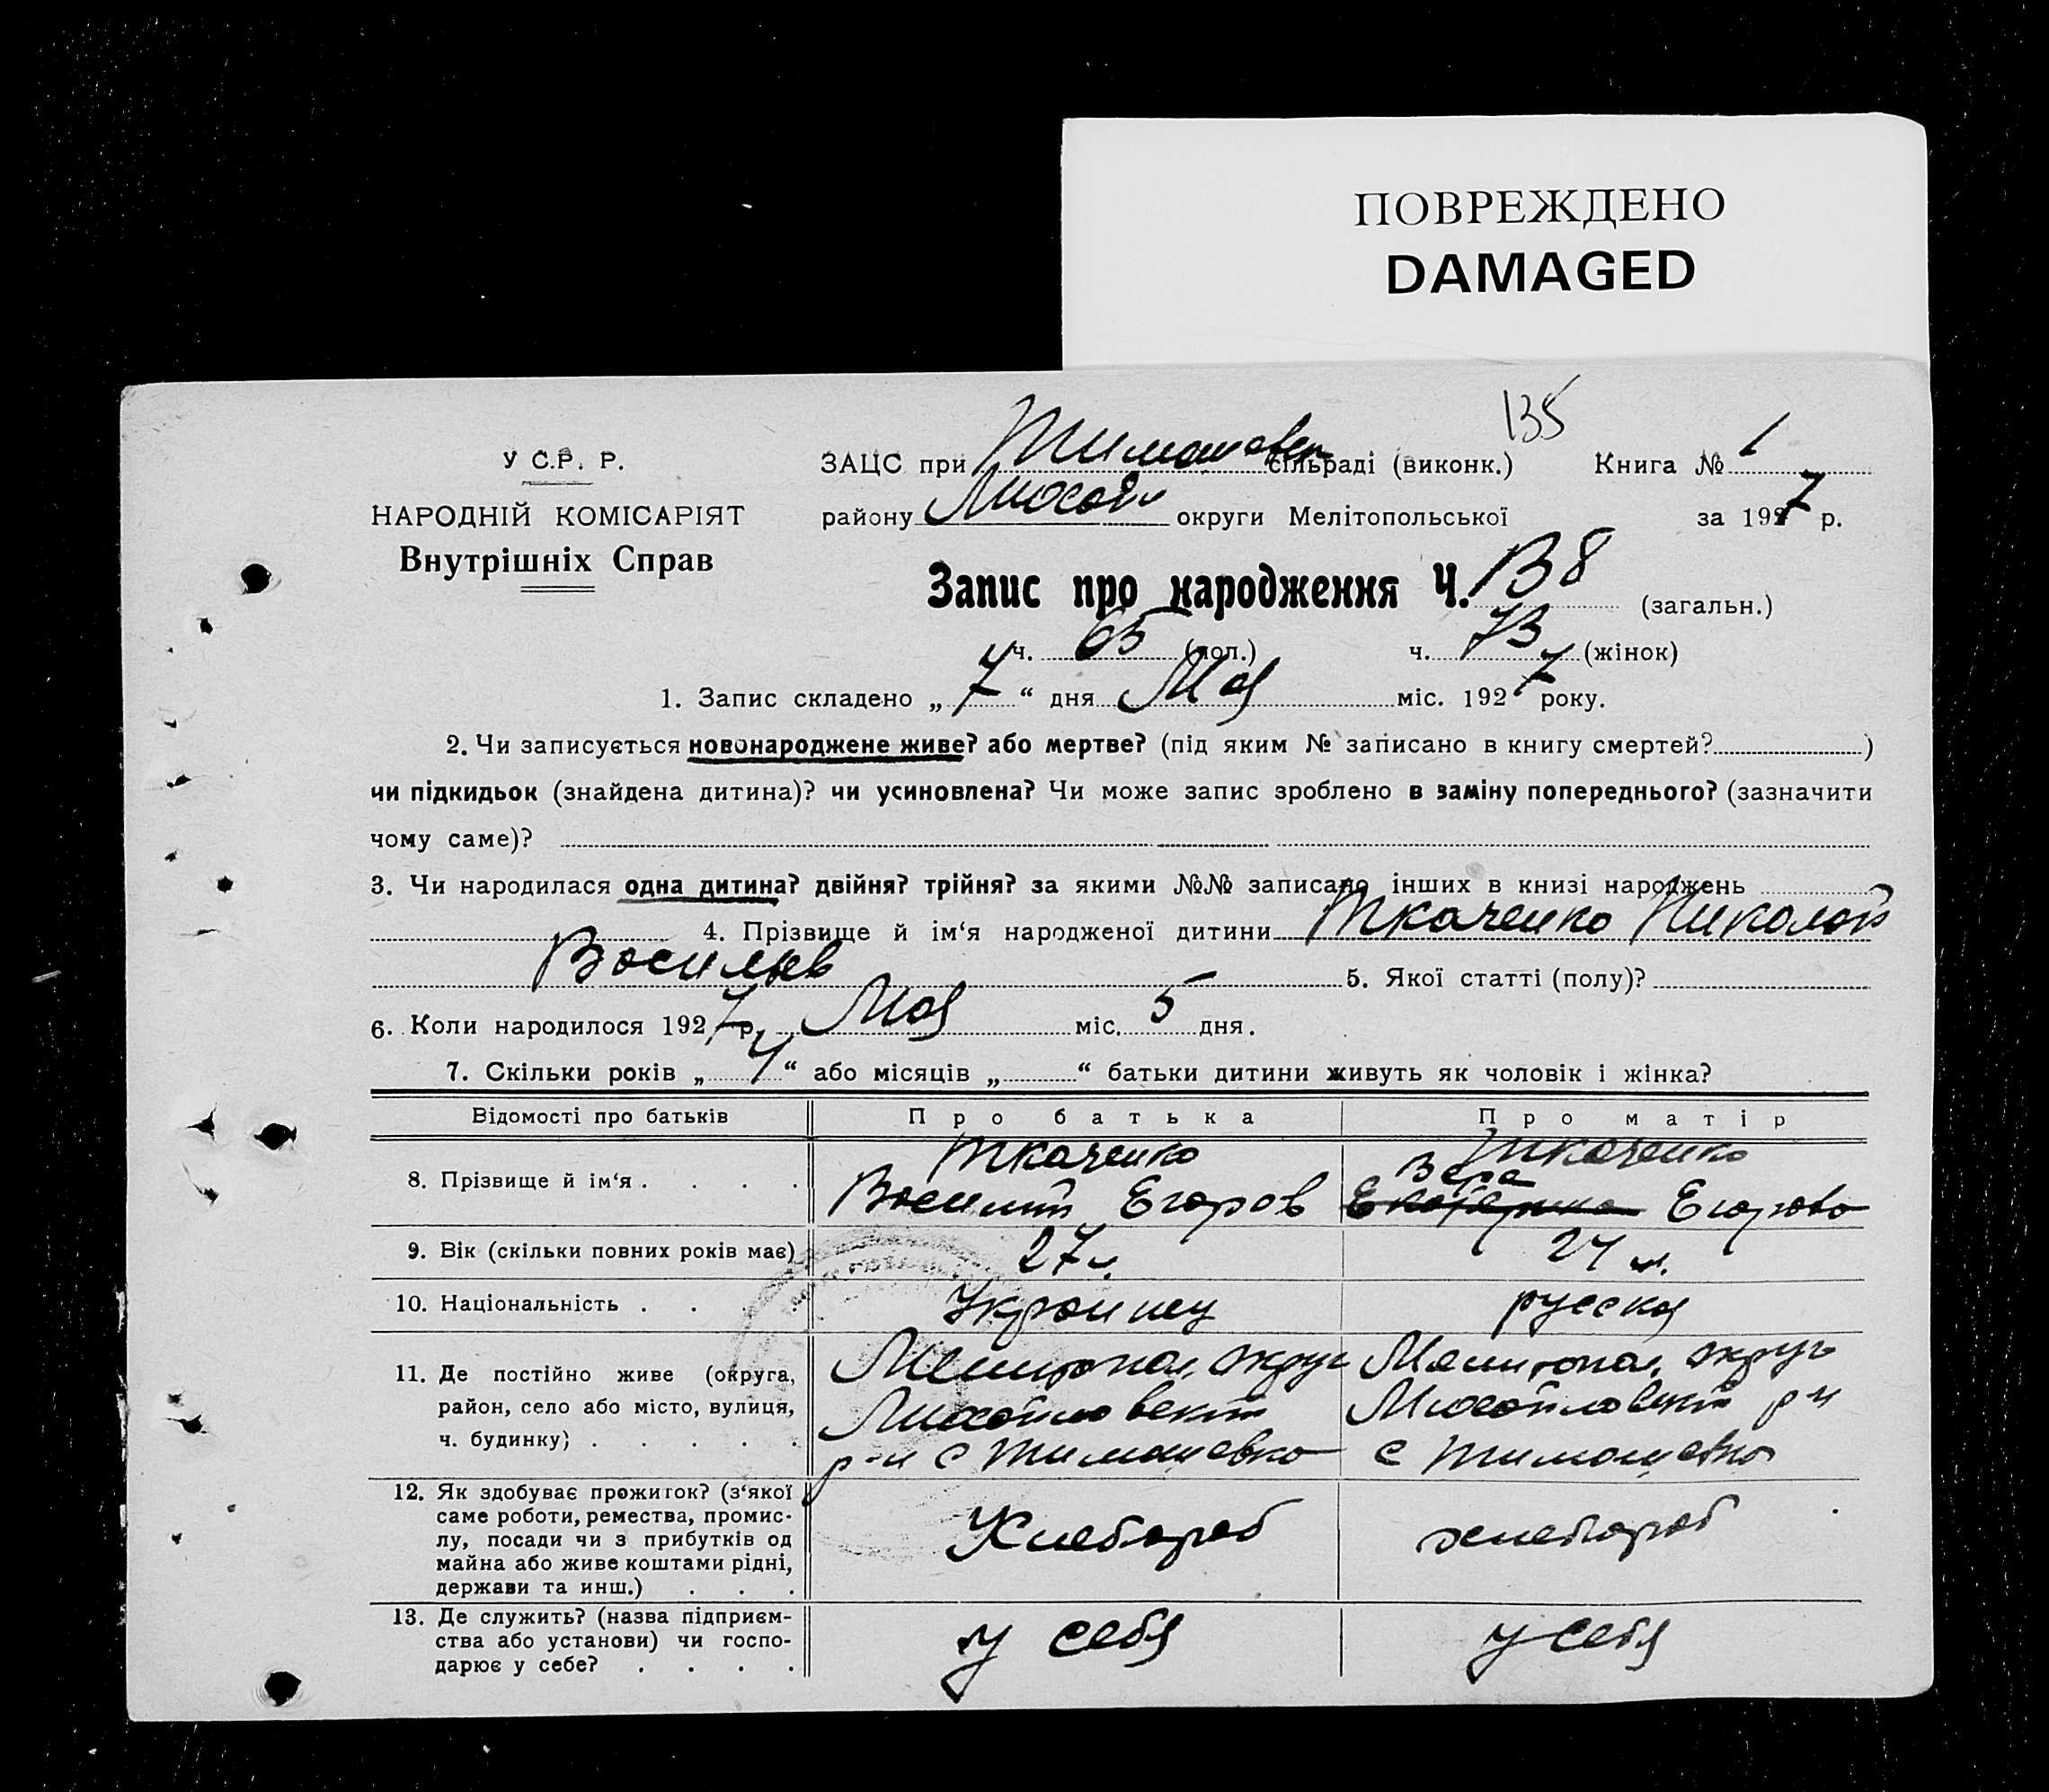 ПОВРЕЖДЕНО
DAMAGED
135
У С.Р. Р.
НАРОДНІЙ КОМІСАРІЯТ
Внутрішніх Справ
ЗАЦС при Тимошевск сільраді (виконк.) Книга № 1
району Михайл округи Мелітопольської за 1927 р.
Запис про народження Ч. 138 (загальн.)
ч. 65 (пол.) ч. 73 (жінок)
1. Запис складено „ 7 “ дня Мая міс. 1927 року.
2. Чи записується новонароджене живе? або мертве? (під яким № записано в книгу смертей? )
чи підкидьок (знайдена дитина)? чи усиновлена? Чи може запис зроблено в заміну попереднього? (зазначити
чому саме)?
3. Чи народилася одна дитина? двійня? трійня? за якими №№ записано інших в книзі нарождень
4. Прізвище й ім‘я народженої дитини Ткаченко Николай
Васильев 5. Якої статті (полу)?
6. Коли народилося 1927 р. Мая міс. 5 дня.
7. Скільки років „ 4 “ або місяців „ “ батьки дитини живуть як чоловік і жінка?
Відомості про батьків Про батька Про матір
8. Прізвище й ім‘я . . . . Ткаченко Василий Егоров Ткаченко Вера Екатерина Егорова
9. Вік (скільки повних років має) 27 л. 24 л.
10. Національність . . . Украинец русская
11. Де постійно живе (округа, Мелитопол. округ Мелитопол. округ
район, село або місто, вулиця, Михайловский Михайловский р-н
ч. будинку) . . . . . р-н с Тимашевка с Тимошевка
12. Як здобуває прожиток? (з‘якої
саме роботи, ремества, промис-
лу, посади чи з прибутків од Хлебороб хлебороб
майна або живе коштами рідні,
держави та инш.) . . .
13. Де служить? (назва підприєм-
ства або установи) чи госпо- у себя у себя
дарює у себе? . . . .